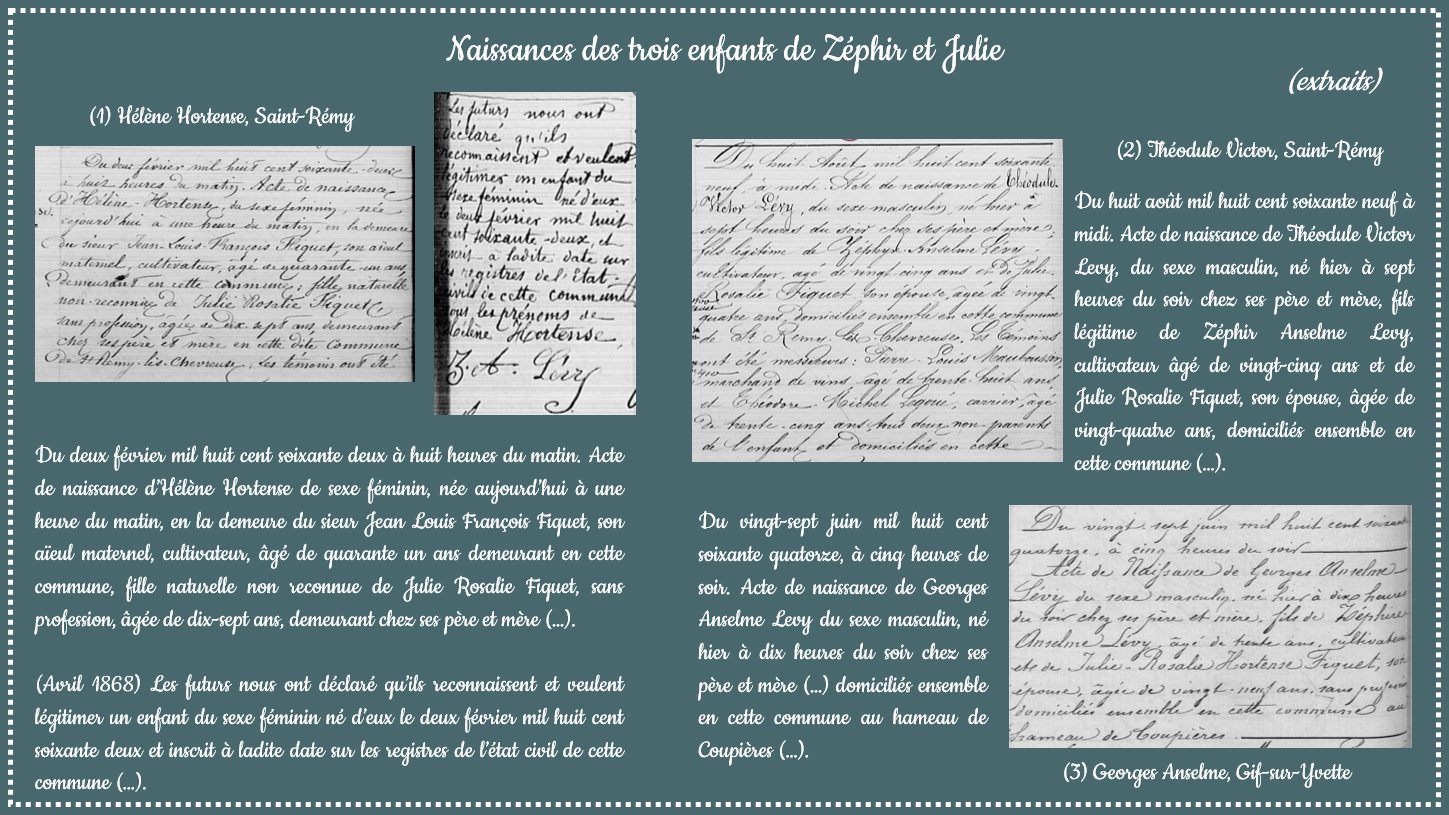 Naissances des trois enfants de Zéphir et Julie
(extraits)
(1) Hélène Hortense, Saint-Rémy
Du deux février mil huit cent soixante-deux
à huit heures du matin. Acte de naissance
d'Hélène-Hortense, du sexe féminin, née
cejourd'hui à une heure du matin, en la demeure
du sieur Jean-Louis François Fiquet, son aïeul
maternel, cultivateur, âgé de quarante-un ans,
demeurant en cette commune; fille naturelle
non-reconnue de Julie Rosalie Fiquet,
sans profession, âgée de dix-sept ans, demeurant
chez ses père et mère en cette dite commune
de St Rémy-lès-Chevreuse; les témoins ont été
Les futurs nous ont
déclaré qu'ils
reconnaissent et veulent
légitimer un enfant du
sexe féminin né d'eux
le deux février mil huit
cent soixante-deux, et
inscrit à ladite date sur
les registres de l'état-
civil de cette commune
sous les prénoms de
Hélène Hortense,
Z. A. Lévy
Du deux février mil huit cent soixante deux à huit heures du matin. Acte
de naissance d'Hélène Hortense de sexe féminin, née aujourd'hui à une
heure du matin, en la demeure du sieur Jean Louis François Fiquet, son
aïeul maternel, cultivateur, âgé de quarante un ans demeurant en cette
commune, fille naturelle non reconnue de Julie Rosalie Fiquet, sans
profession, âgée de dix-sept ans, demeurant chez ses père et mère (...).
(Avril 1868) Les futurs nous ont déclaré qu'ils reconnaissent et veulent
légitimer un enfant du sexe féminin né d'eux le deux février mil huit cent
soixante deux et inscrit à ladite date sur les registres de l'état civil de cette
commune (...).
(2) Théodule Victor, Saint-Rémy
Du huit Août mil huit cent soixante-
neuf, à midi. Acte de naissance de Théodule
Victor Lévy, du sexe masculin, né hier à
sept heures du soir chez ses père et mère;
fils légitime de Zéphyr Anselme Lévy,
cultivateur, âgé de vingt cinq ans et de Julie
Rosalie Fiquet, son épouse, âgée de vingt
quatre ans, domiciliés ensemble en cette commune
de St Remy-lès-Chevreuse, les témoins
ont été messieurs: Pierre-Louis
marchand de vins, âgé de trente-huit ans
et Théodore Michel Legoué, carrier, âgé
de trente-cinq ans, tous deux non-parents
de l'enfant et domiciliés en cette
Du huit août mil huit cent soixante neuf à
midi. Acte de naissance de Théodule Victor
Levy, du sexe masculin, né hier à sept
heures du soir chez ses père et mère, fils
légitime de Zéphir Anselme Levy,
cultivateur âgé de vingt-cinq ans et de
Julie Rosalie Fiquet, son épouse, âgée de
vingt-quatre ans, domiciliés ensemble en
cette commune (...).
Du vingt-sept juin mil huit cent
soixante quatorze, à cinq heures de
soir. Acte de naissance de Georges
Anselme Levy du sexe masculin, né
hier à dix heures du soir chez ses
père et mère (...) domiciliés ensemble
en cette commune au hameau de
Coupières (...).
Du vingt-sept juin mil huit cent soixante
quatorze, à cinq heures du soir
Acte de Naissance de Georges Anselme
Lévy du sexe masculin, né hier à dix heures
du soir chez ses père et mère, fils de Zéphire
Anselme Lévy, âgé de trente ans, cultivateur
et de Julie-Rosalie Hortense Fiquet, son
épouse, âgée de vingt-neuf ans, sans profession
domiciliés ensemble en cette commune au
hameau de Coupières.
(3) Georges Anselme, Gif-sur-Yvette